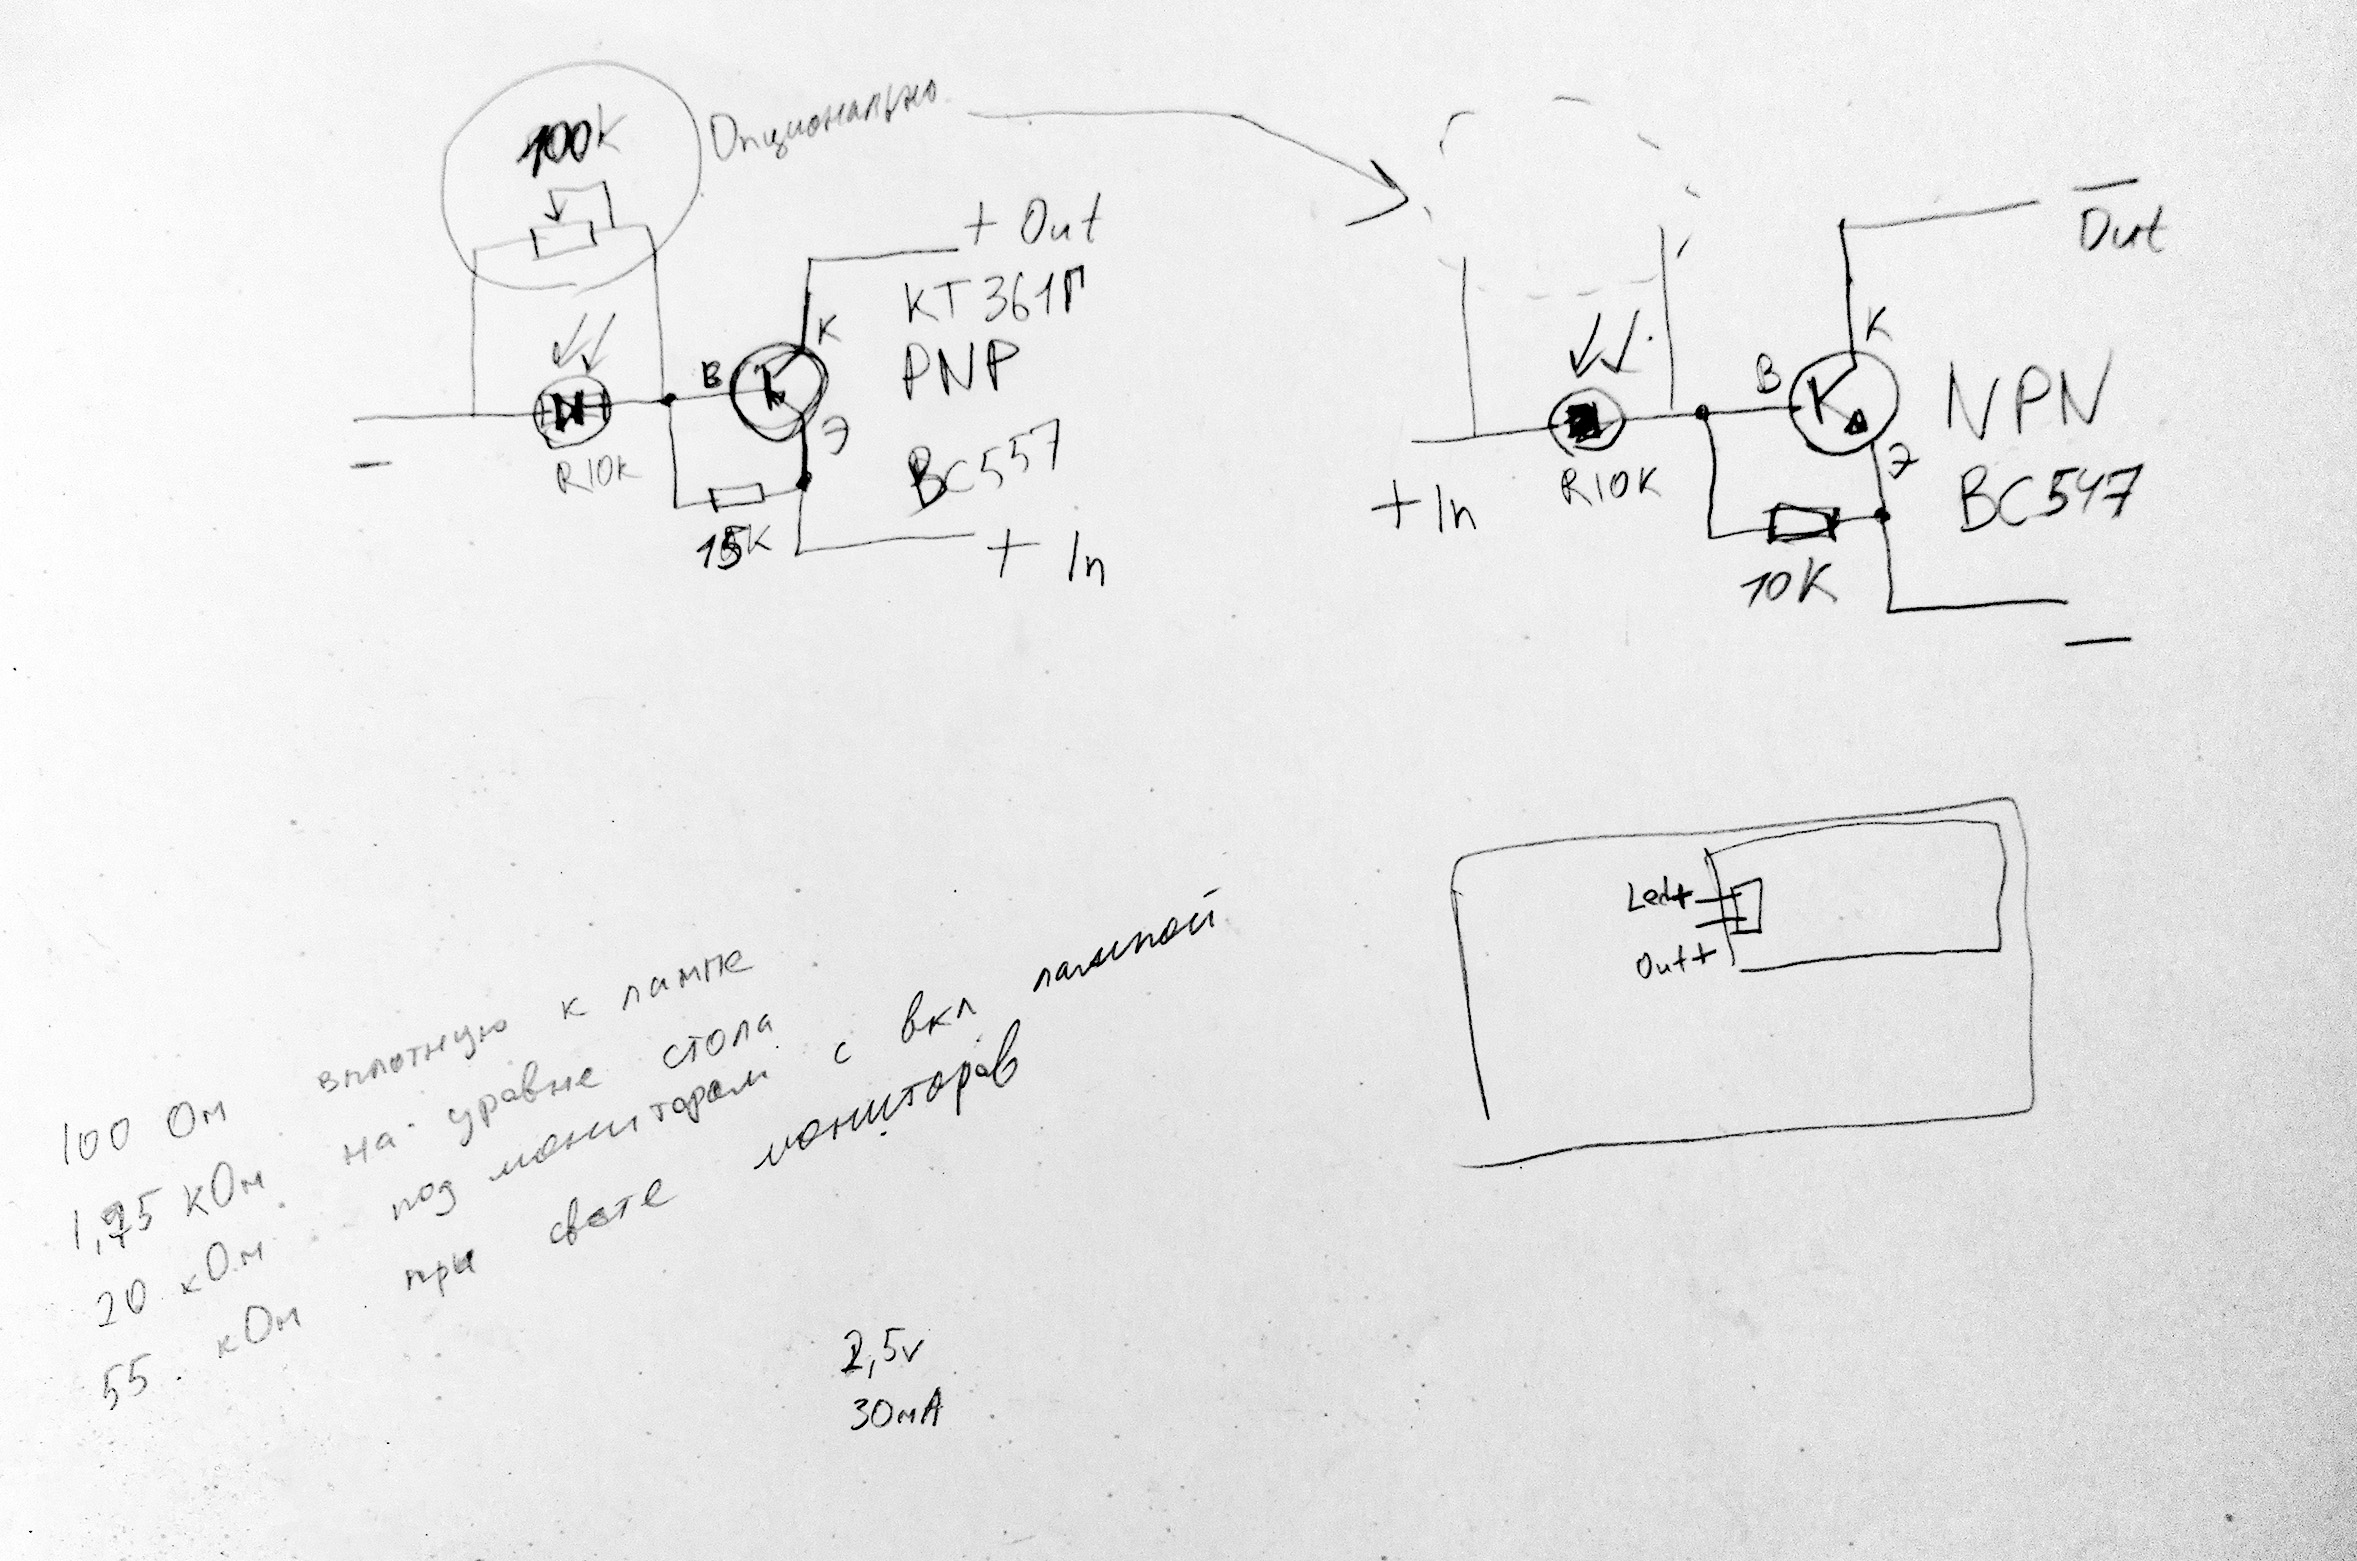 100К
Опционально
+ Out
К
КТ361Г
PNP
В
Э
BC557
R10К
15К
+ In
−
Out
−
К
В
NPN
Э
BC547
R10К
+ In
10К
−
Led+
Out+
100 Ом вплотную к лампе
1,75 кОм на уравне стола
20 кОм под монитором с вкл лампой
55 кОм при свете мониторов
2,5v
30мА